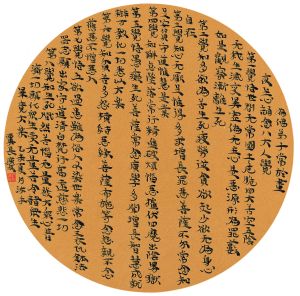 為佛弟子常於晝
夜至心誦念八大人覺
第一覺悟世間無常國土危脆四大苦空五陰
無我生滅變異虛偽無主心是惡源形為罪藪
如是觀察漸離生死
第二覺知多欲為苦生死疲勞從貪欲起少欲無為身心
自在
第三覺知心無厭足惟得多求增長罪惡菩薩不爾常念
知足安貧守道惟慧是業
第四覺知懈怠墜落常行精進破煩惱惡摧伏四魔出陰界獄
第五覺悟愚癡生死菩薩常念廣學多聞增長智慧成就
辯才教化一切悉以大樂
第六覺知貧苦多怨橫結惡緣菩薩布施等念怨親不念
舊惡不憎惡人
第七覺悟五欲過患雖為俗人不染世樂常念三衣瓦缽法
器志願出家守道清白梵行高遠慈悲一切
第八覺知生死熾然苦惱無量發大乘心普
濟一切願代眾生受無量苦令諸眾生
畢竟大樂